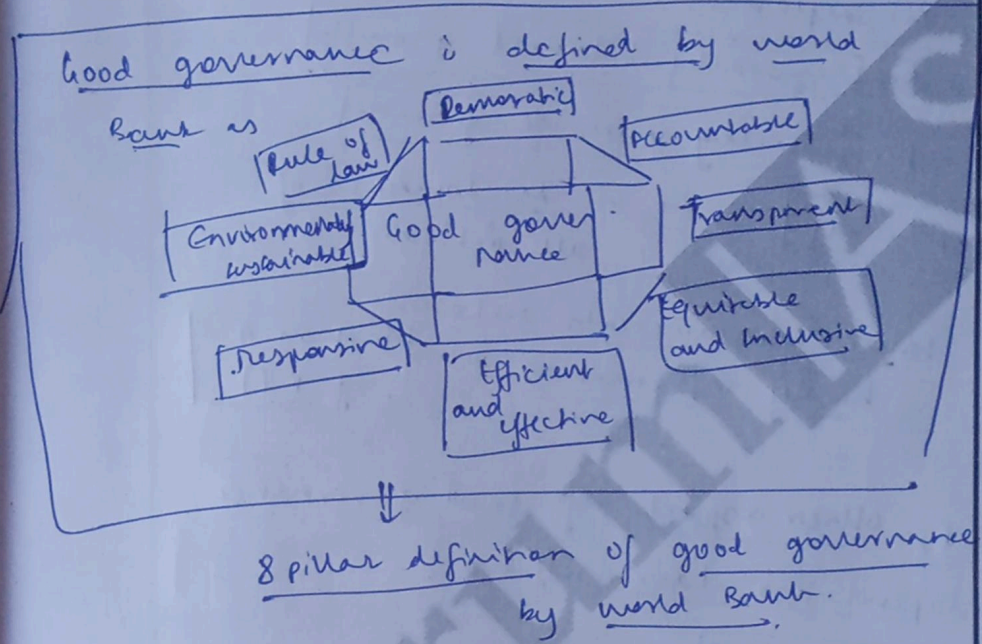 Good governance is defined by world
Bank as
Democratic
Accountable
Rule of
law
Transparent
Environmentally
sustainable
Good gover
nance
Equitable
and Inclusive
Responsive
Efficient
and
effective
8 pillar definition of good governance
by world Bank.
rum AC